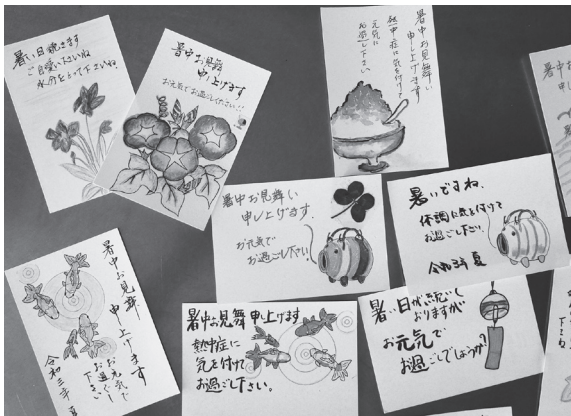 暑い日続きます
ご自愛下さいね
水分をとって下さいね。
暑中お見舞
申し上げます
お元気でお過ごしください!!
暑中お見舞い
申し上げます
熱中症に気を付けて
元気に
お過ごし下さい
暑中お見舞い
申し上げます。
お元気で
お過ごし下さい
暑いですね、
体調に気を付けて
お過ごし下さい。
令和3年夏
暑中お見舞
申し上げます
お元気で
お過ごし
下さい
令和三年夏
暑中お見舞申し上げます
熱中症に
気を付けて
お過ごし下さい。
暑い日が続いて
おりますが
お元気で
お過ごしでしょうか?